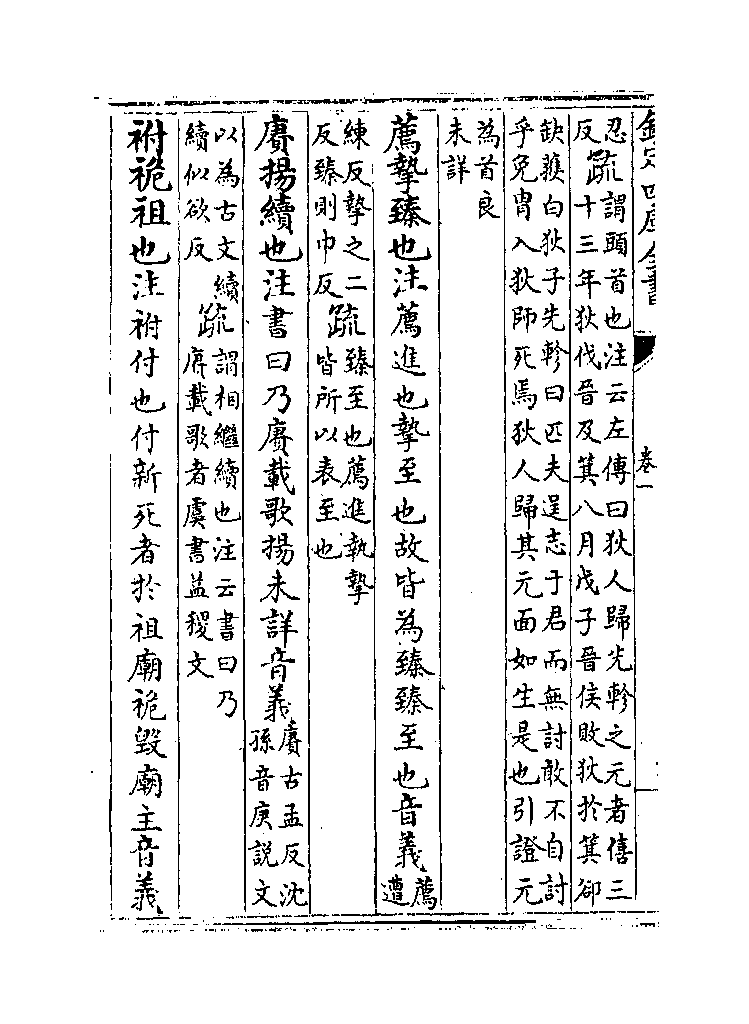 欽定四庫全書
卷一
忍
反疏謂頭首也注云左傳曰狄人歸先軫之元者僖三
十三年狄伐晉及箕八月戊子晉侯敗狄於箕卻
缺獲白狄子先軫曰匹夫逞志于君而無討敢不自討
乎免冑入狄師死焉狄人歸其元面如生是也引證元
為首良
未詳
薦摯臻也注薦進也摯至也故皆為臻臻至也音義薦
遭
練反摯之二
反臻則巾反疏臻至也薦進執摯
皆所以表至也
賡揚續也注書曰乃賡載歌揚未詳音義賡古孟反沈
孫音庚説文
以為古文續
續似欲反疏謂相繼續也注云書曰乃
賡載歌者虞書益稷文
祔祪祖也注祔付也付新死者於祖廟祪毀廟主音義